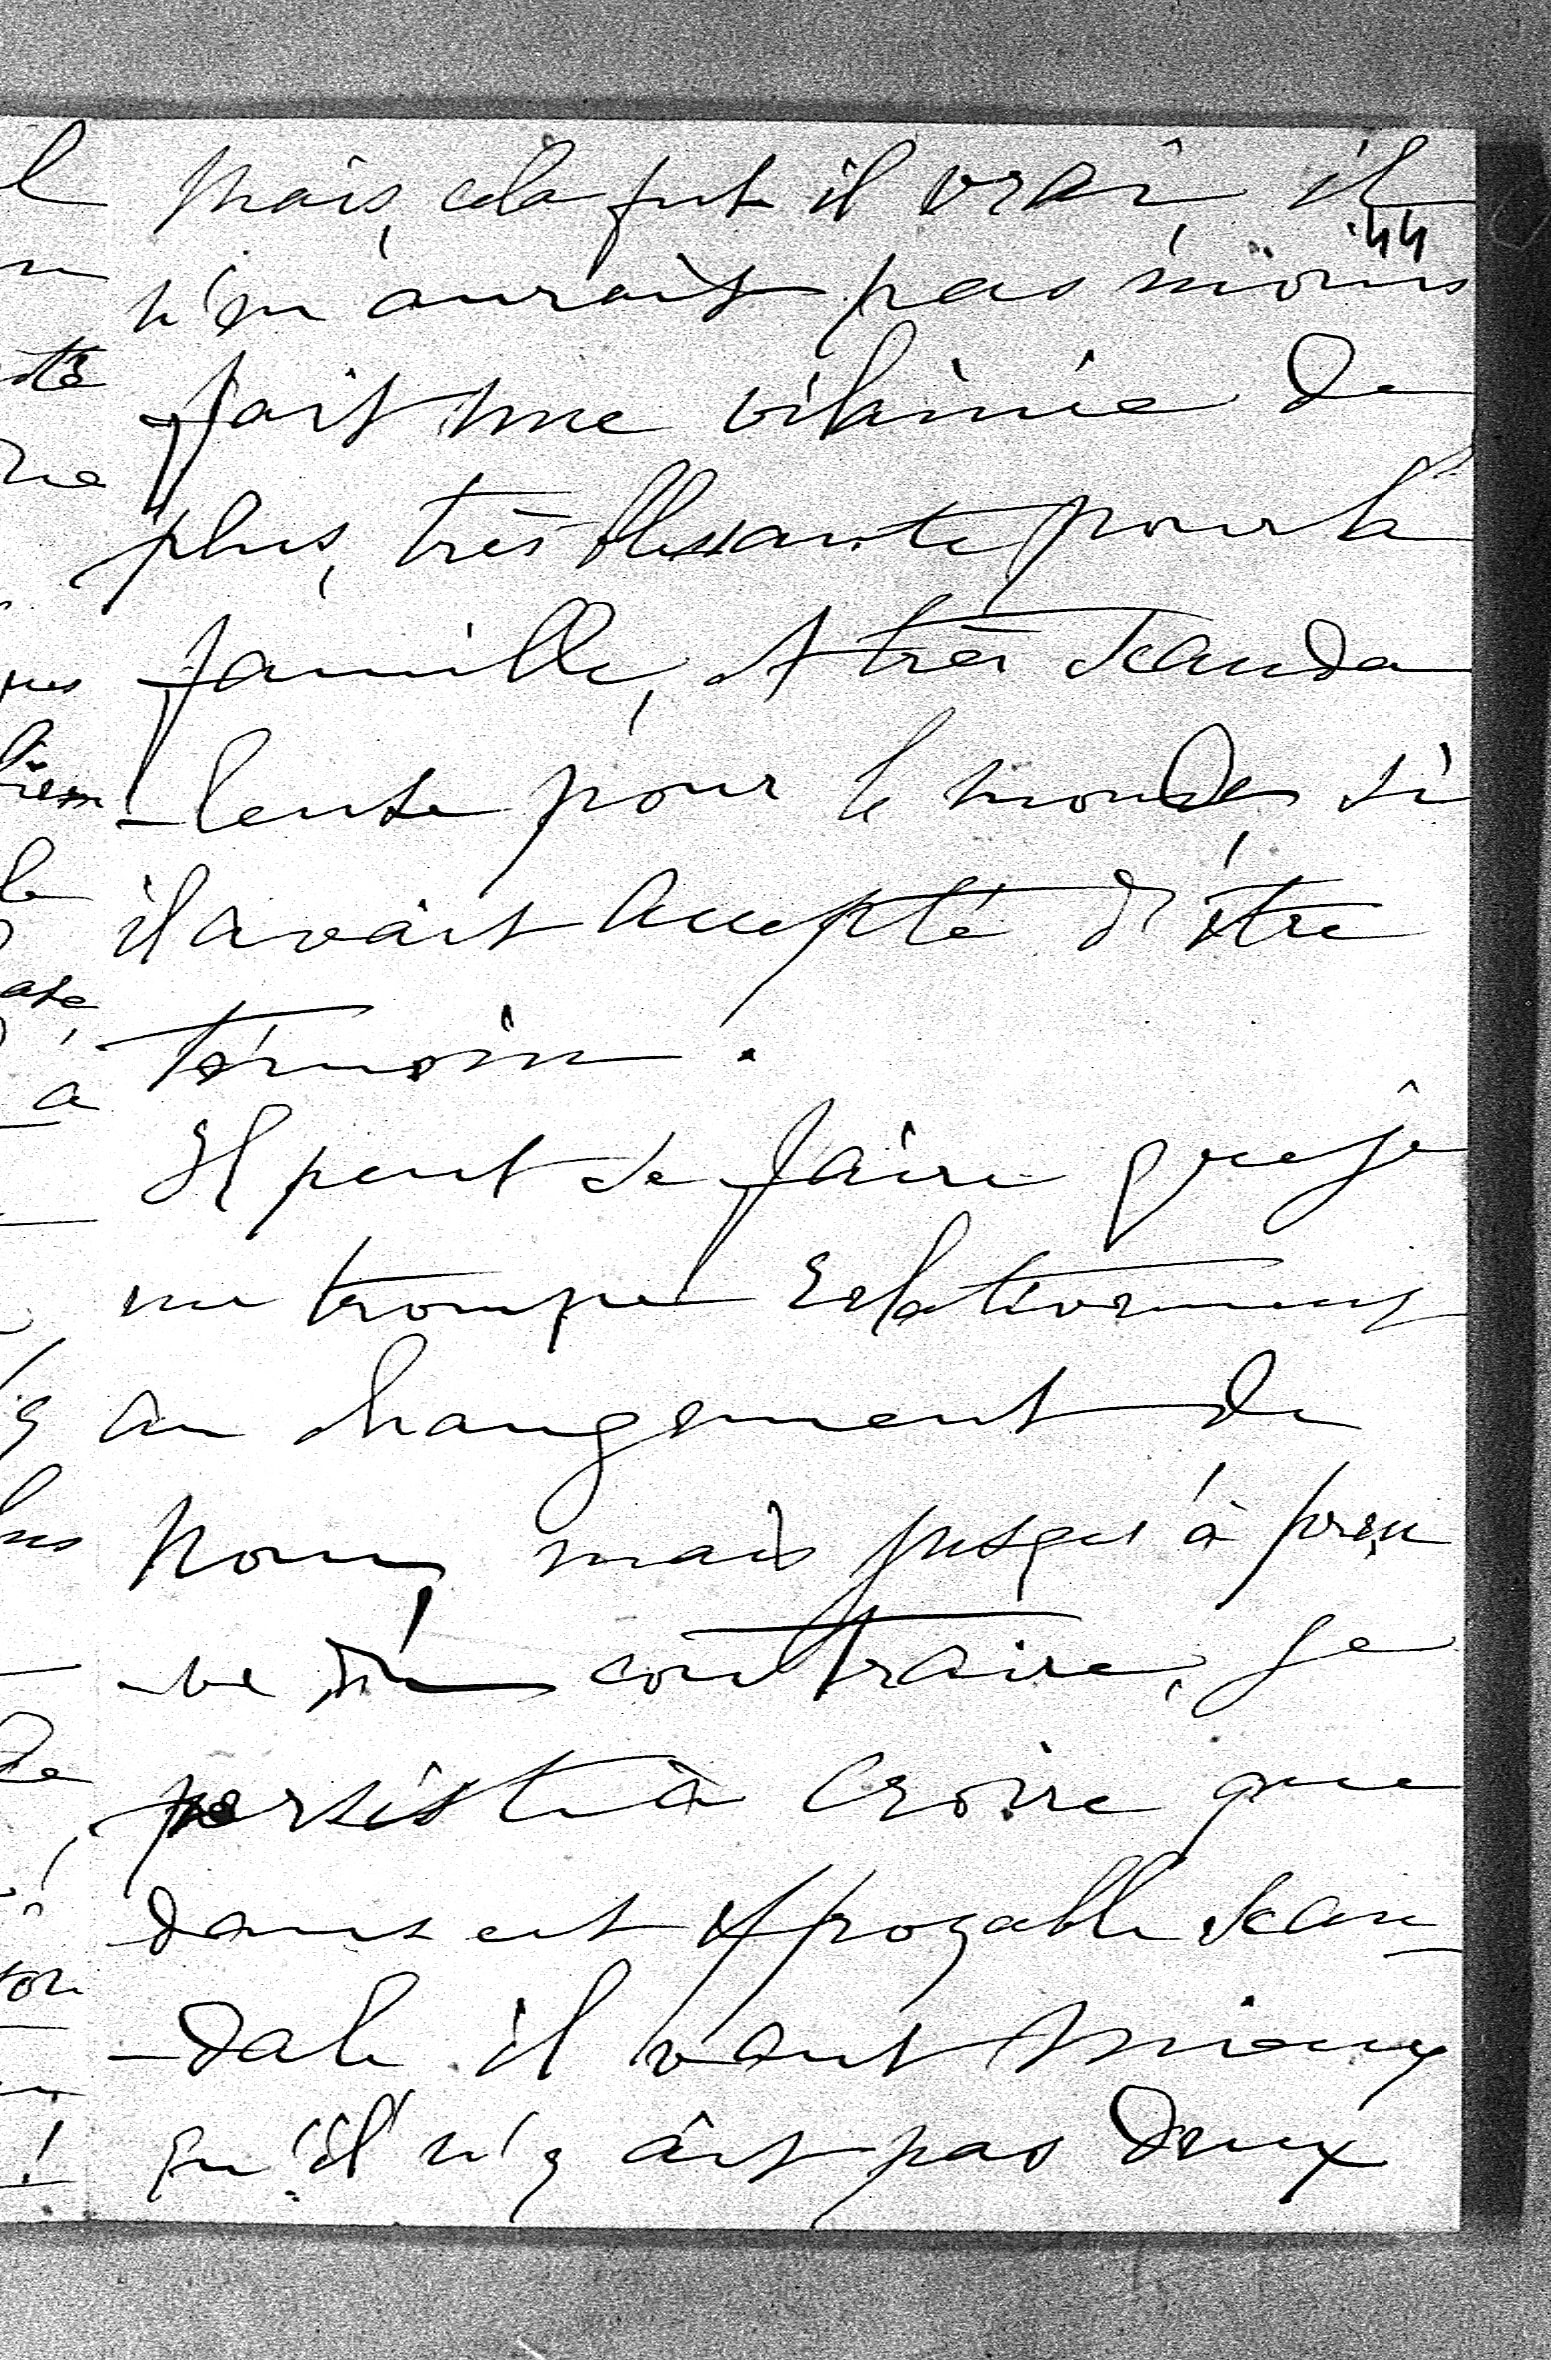 Mais, cela fut il vrai, il
44
n'en aurait pas moins
fait une vilainie de
plus, très blessante pour la
famille, et très scanda
-leuse pour le monde, si
il avait accepté d'être
témoin.
Il peut se faire que je
me trompe relativement
au changement de
nom, mais jusqu'à preu
-ve du contraire, je
persiste à croire que
dans cet effroyable scan
-dale il vaut mieux
qu'il n'y ait pas deux